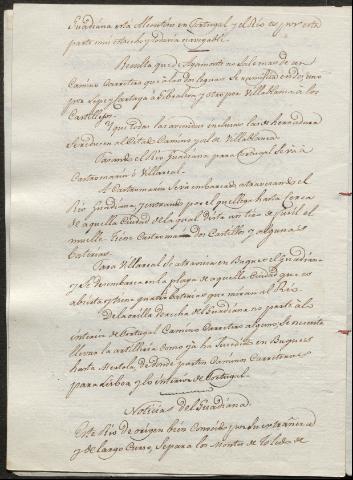 Guadiana esta Alcoutin en Portugal y el Rio es por esta
parte muy estrecho y todavia navegable.
Resulta que de Ayamonte no Salen mas de un
Camino Carretero que a las dos leguas Se reparte en dos; uno
por Lepe y Cartaya a Gibraleon y otro por Villablanca a los
Castillejos.
Y que todas las avenidas inclusas las de herradura
Se reducen al Citado Camino y al de Villablanca
Pasando el Rio Guadiana para Portugal Se va à
Castromarin ó Villareal.
A Castromarin Se va embarcado atravesando el
Rio Guadiana, y entrando por el que llega hasta Cerca
de aquella Ciudad de la qual dista un tiro de fusil el
muelle. Tiene Castromarin dos Castillos y algunas
baterias.
Para Villareal Se atraviesa en Buque el Guadiana
y Se desembarca en la plaza de aquella Ciudad que es
abierta y tiene quatro baterias que miran al Rio.
De la orilla derecha de Guadiana no parte à lo
interior de Portugal Camino Carretero alguno; Se necesita
llevar la artilleria como ya ha Sucedido en Buques
hasta Mertola, de donde parten Caminos Carreteros
para Lisboa y lo interior de Portugal.
Noticias del Guadiana
Este Rio de origen bien Conocido por Su extrañeza
y de largo Curso, Separa los Montes de Toledo de